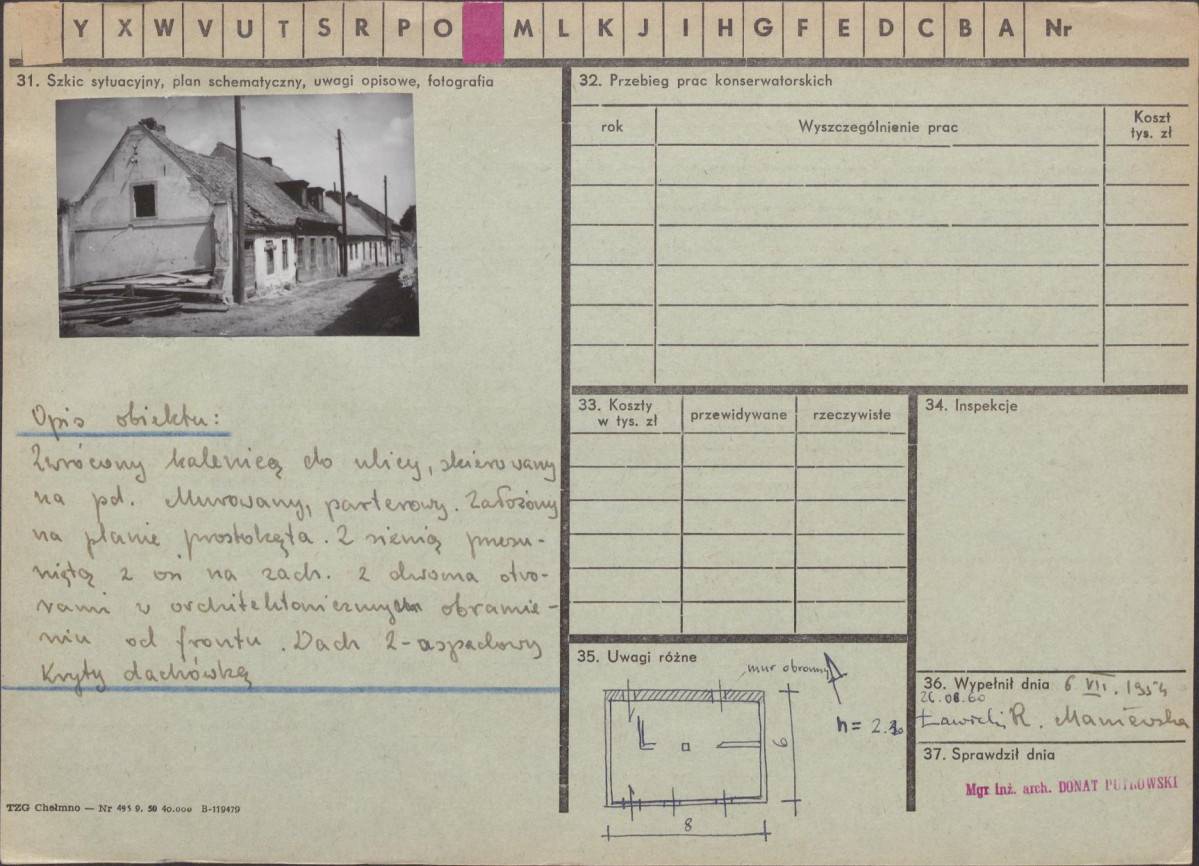 Y X W V U T S R P O M L K J I H G F E D C B A Nr
31. Szkic sytuacyjny, plan schematyczny, uwagi opisowe, fotografia
Opis obiektu:
Zwrócony kalenicą do ulicy, skierowany
na pd. Murowany, parterowy. Założony
na planie prostokąta. Z sienią przesu-
niętą z osi na zach. z dwoma otwo-
rami w architektonicznym obramie-
niu od frontu. Dach 2-aspadowy
Kryty dachówką
TZG Chełmno — Nr 495 9. 50 40.000 B-119479
32. Przebieg prac konserwatorskich
rok Wyszczególnienie prac Koszt
tys. zł
33. Koszty
w tys. zł przewidywane rzeczywiste
34. Inspekcje
35. Uwagi różne
mur obronny
h = 2.30
6
8
36. Wypełnił dnia 6 VII. 1954
26.08.60
Ławicki R. Maniewska
37. Sprawdził dnia
Mgr inż. arch. DONAT PUTKOWSKI